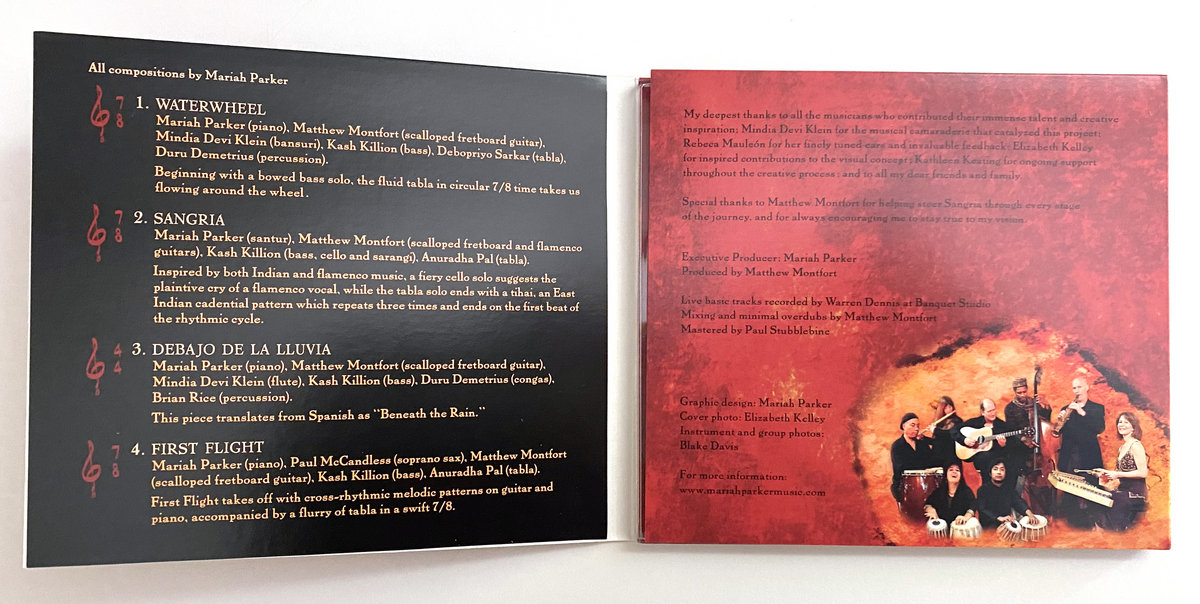 All compositions by Mariah Parker
7
8
1. WATERWHEEL
Mariah Parker (piano), Matthew Montfort (scalloped fretboard guitar),
Mindia Devi Klein (bansuri), Kash Killion (bass), Debopriyo Sarkar (tabla),
Duru Demetrius (percussion).
Beginning with a bowed bass solo, the fluid tabla in circular 7/8 time takes us
flowing around the wheel.
7
8
2. SANGRIA
Mariah Parker (santur), Matthew Montfort (scalloped fretboard and flamenco
guitars), Kash Killion (bass, cello and sarangi), Anuradha Pal (tabla).
Inspired by both Indian and flamenco music, a fiery cello solo suggests the
plaintive cry of a flamenco vocal, while the tabla solo ends with a tihai, an East
Indian cadential pattern which repeats three times and ends on the first beat of
the rhythmic cycle.
4
4
3. DEBAJO DE LA LLUVIA
Mariah Parker (piano), Matthew Montfort (scalloped fretboard guitar),
Mindia Devi Klein (flute), Kash Killion (bass), Duru Demetrius (congas),
Brian Rice (percussion).
This piece translates from Spanish as "Beneath the Rain."
7
8
4. FIRST FLIGHT
Mariah Parker (piano), Paul McCandless (soprano sax), Matthew Montfort
(scalloped fretboard guitar), Kash Killion (bass), Anuradha Pal (tabla).
First Flight takes off with cross-rhythmic melodic patterns on guitar and
piano, accompanied by a flurry of tabla in a swift 7/8.
My deepest thanks to all the musicians who contributed their immense talent and creative
inspiration; Mindia Devi Klein for the musical camaraderie that catalyzed this project;
Rebeca Mauleón for her finely tuned ears and invaluable feedback; Elizabeth Kelley
for inspired contributions to the visual concept; Kathleen Keating for ongoing support
throughout the creative process; and to all my dear friends and family.
Special thanks to Matthew Montfort for helping steer Sangria through every stage
of the journey, and for always encouraging me to stay true to my vision.
Executive Producer: Mariah Parker
Produced by Matthew Montfort
Live basic tracks recorded by Warren Dennis at Banquet Studio
Mixing and minimal overdubs by Matthew Montfort
Mastered by Paul Stubblebine
Graphic design: Mariah Parker
Cover photo: Elizabeth Kelley
Instrument and group photos:
Blake Davis
For more information:
www.mariahparkermusic.com